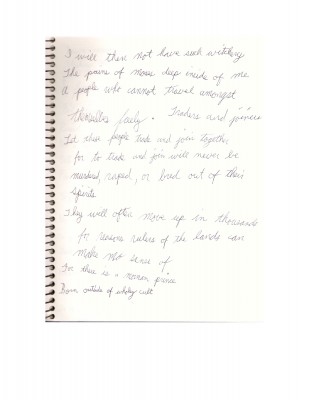 I will then not have such witchery
The pains of move deep inside of me
A people who cannot travel amongst
Themselves freely. Traders and joiners
Let these people trade and join together
for to trade and join will never be
murdered, raped, or bred out of their
spirits
They will often move up in thousands
for reasons rulers of the lands can
make not sense of
For there is a roman prince
Born outside of cult